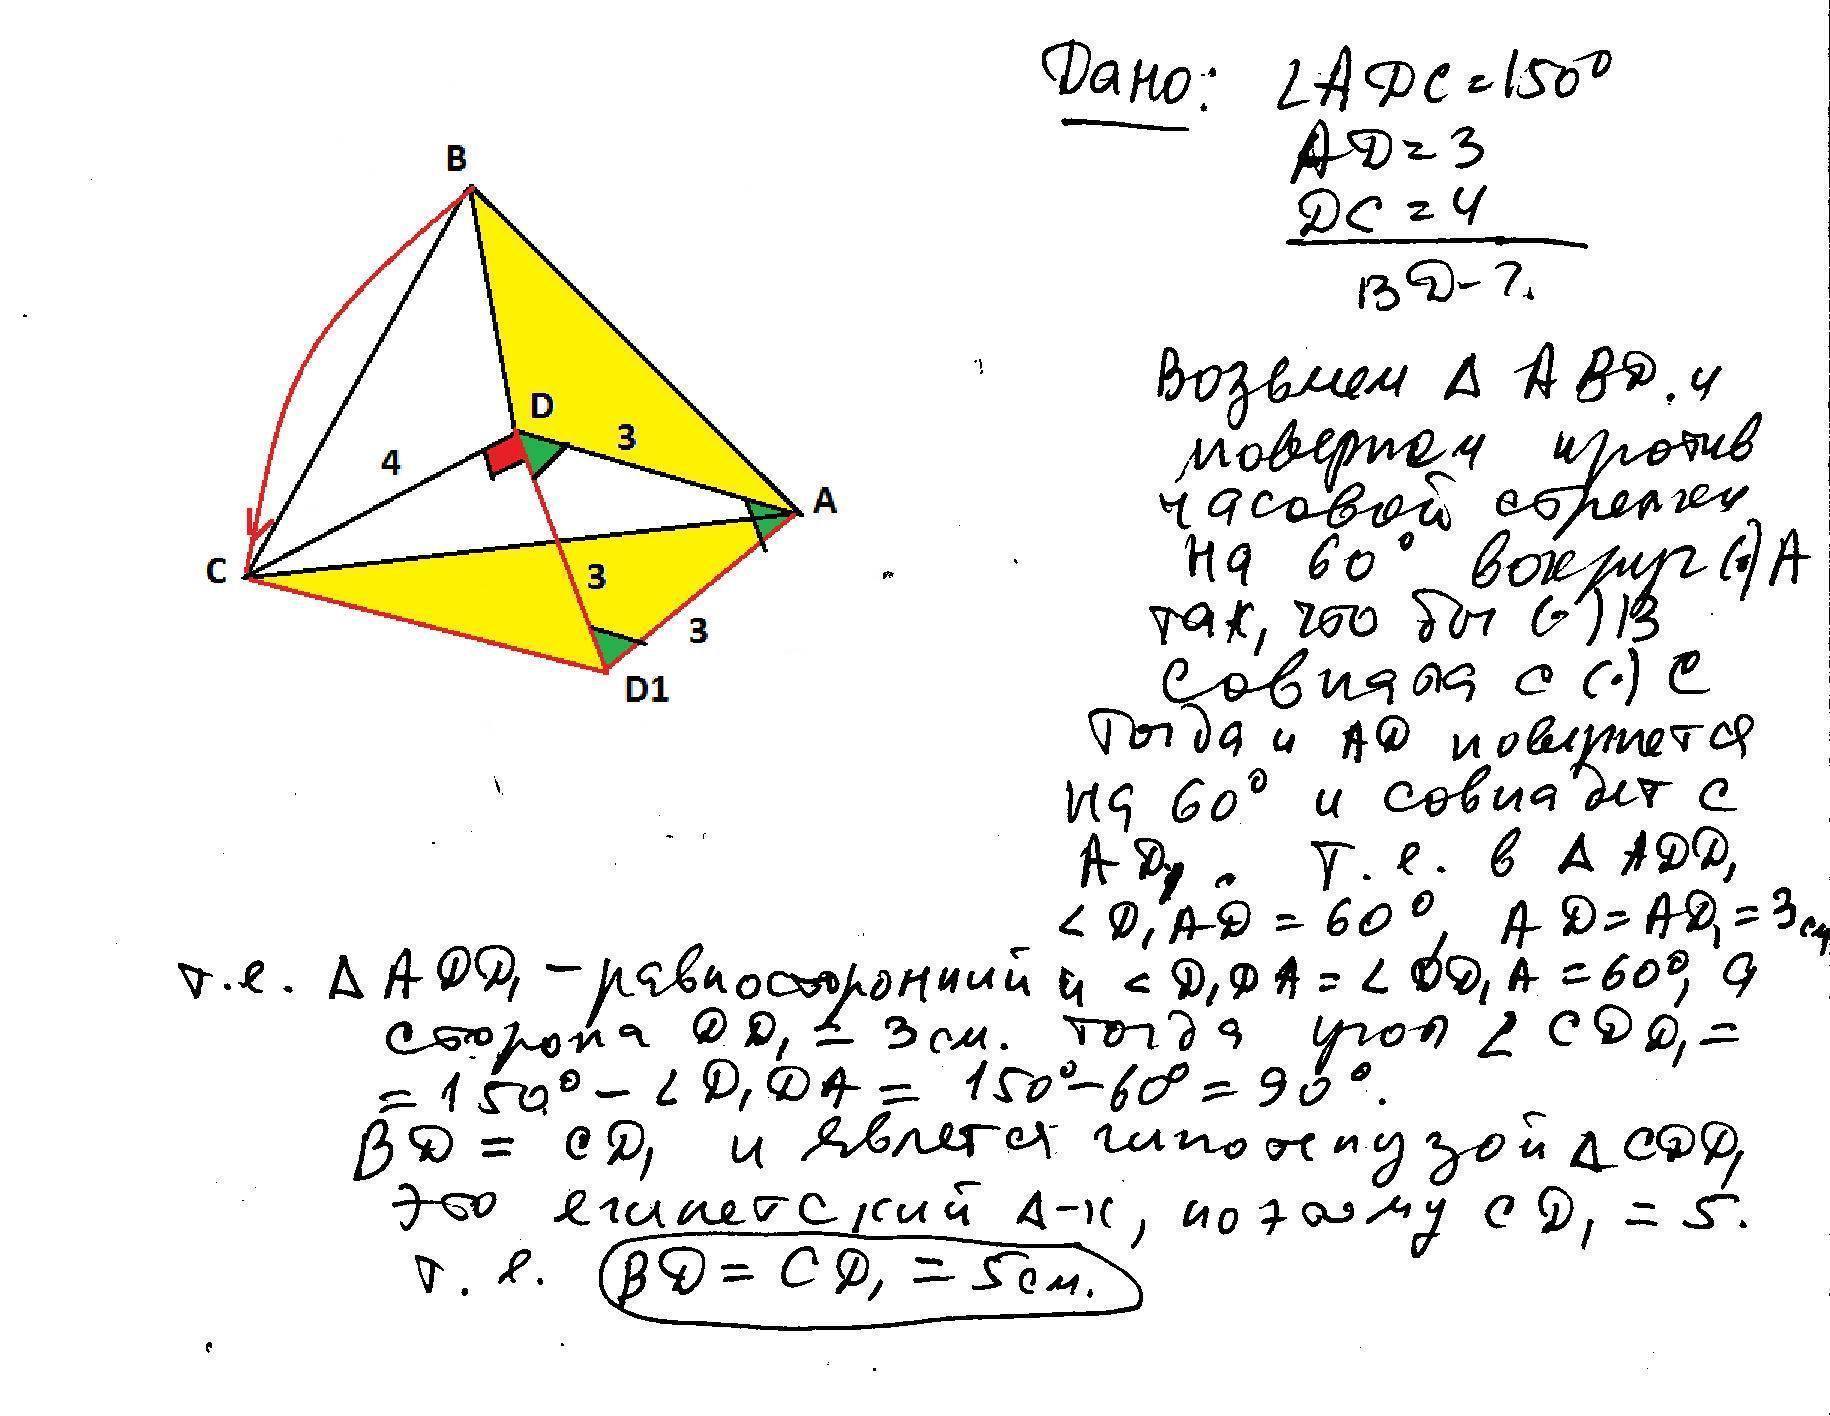 B
D
3
4
A
C
3
3
D1
Дано: ∠ADC=150°
AD=3
DC=4
BD-?.
Возьмем Δ ABD. и
повернем против
часовой стрелки
на 60° вокруг (·)A
так, что бы (·)B
совпала с (·)C
Тогда и AD повернется
на 60° и совпадет с
AD₁. Т.е. в Δ ADD₁
∠D₁AD=60°, AD=AD₁=3см
т.е. Δ ADD₁ - равносторонний и ∠D₁DA=∠DD₁A=60°, а
сторона DD₁=3см. Тогда угол ∠CDD₁=
=150°-∠D₁DA= 150°-60°=90°.
BD = CD₁ и явлется гипотенузой ΔCDD₁
это египетский Δ-к, поэтому CD₁=5.
т.е. BD=CD₁=5см.